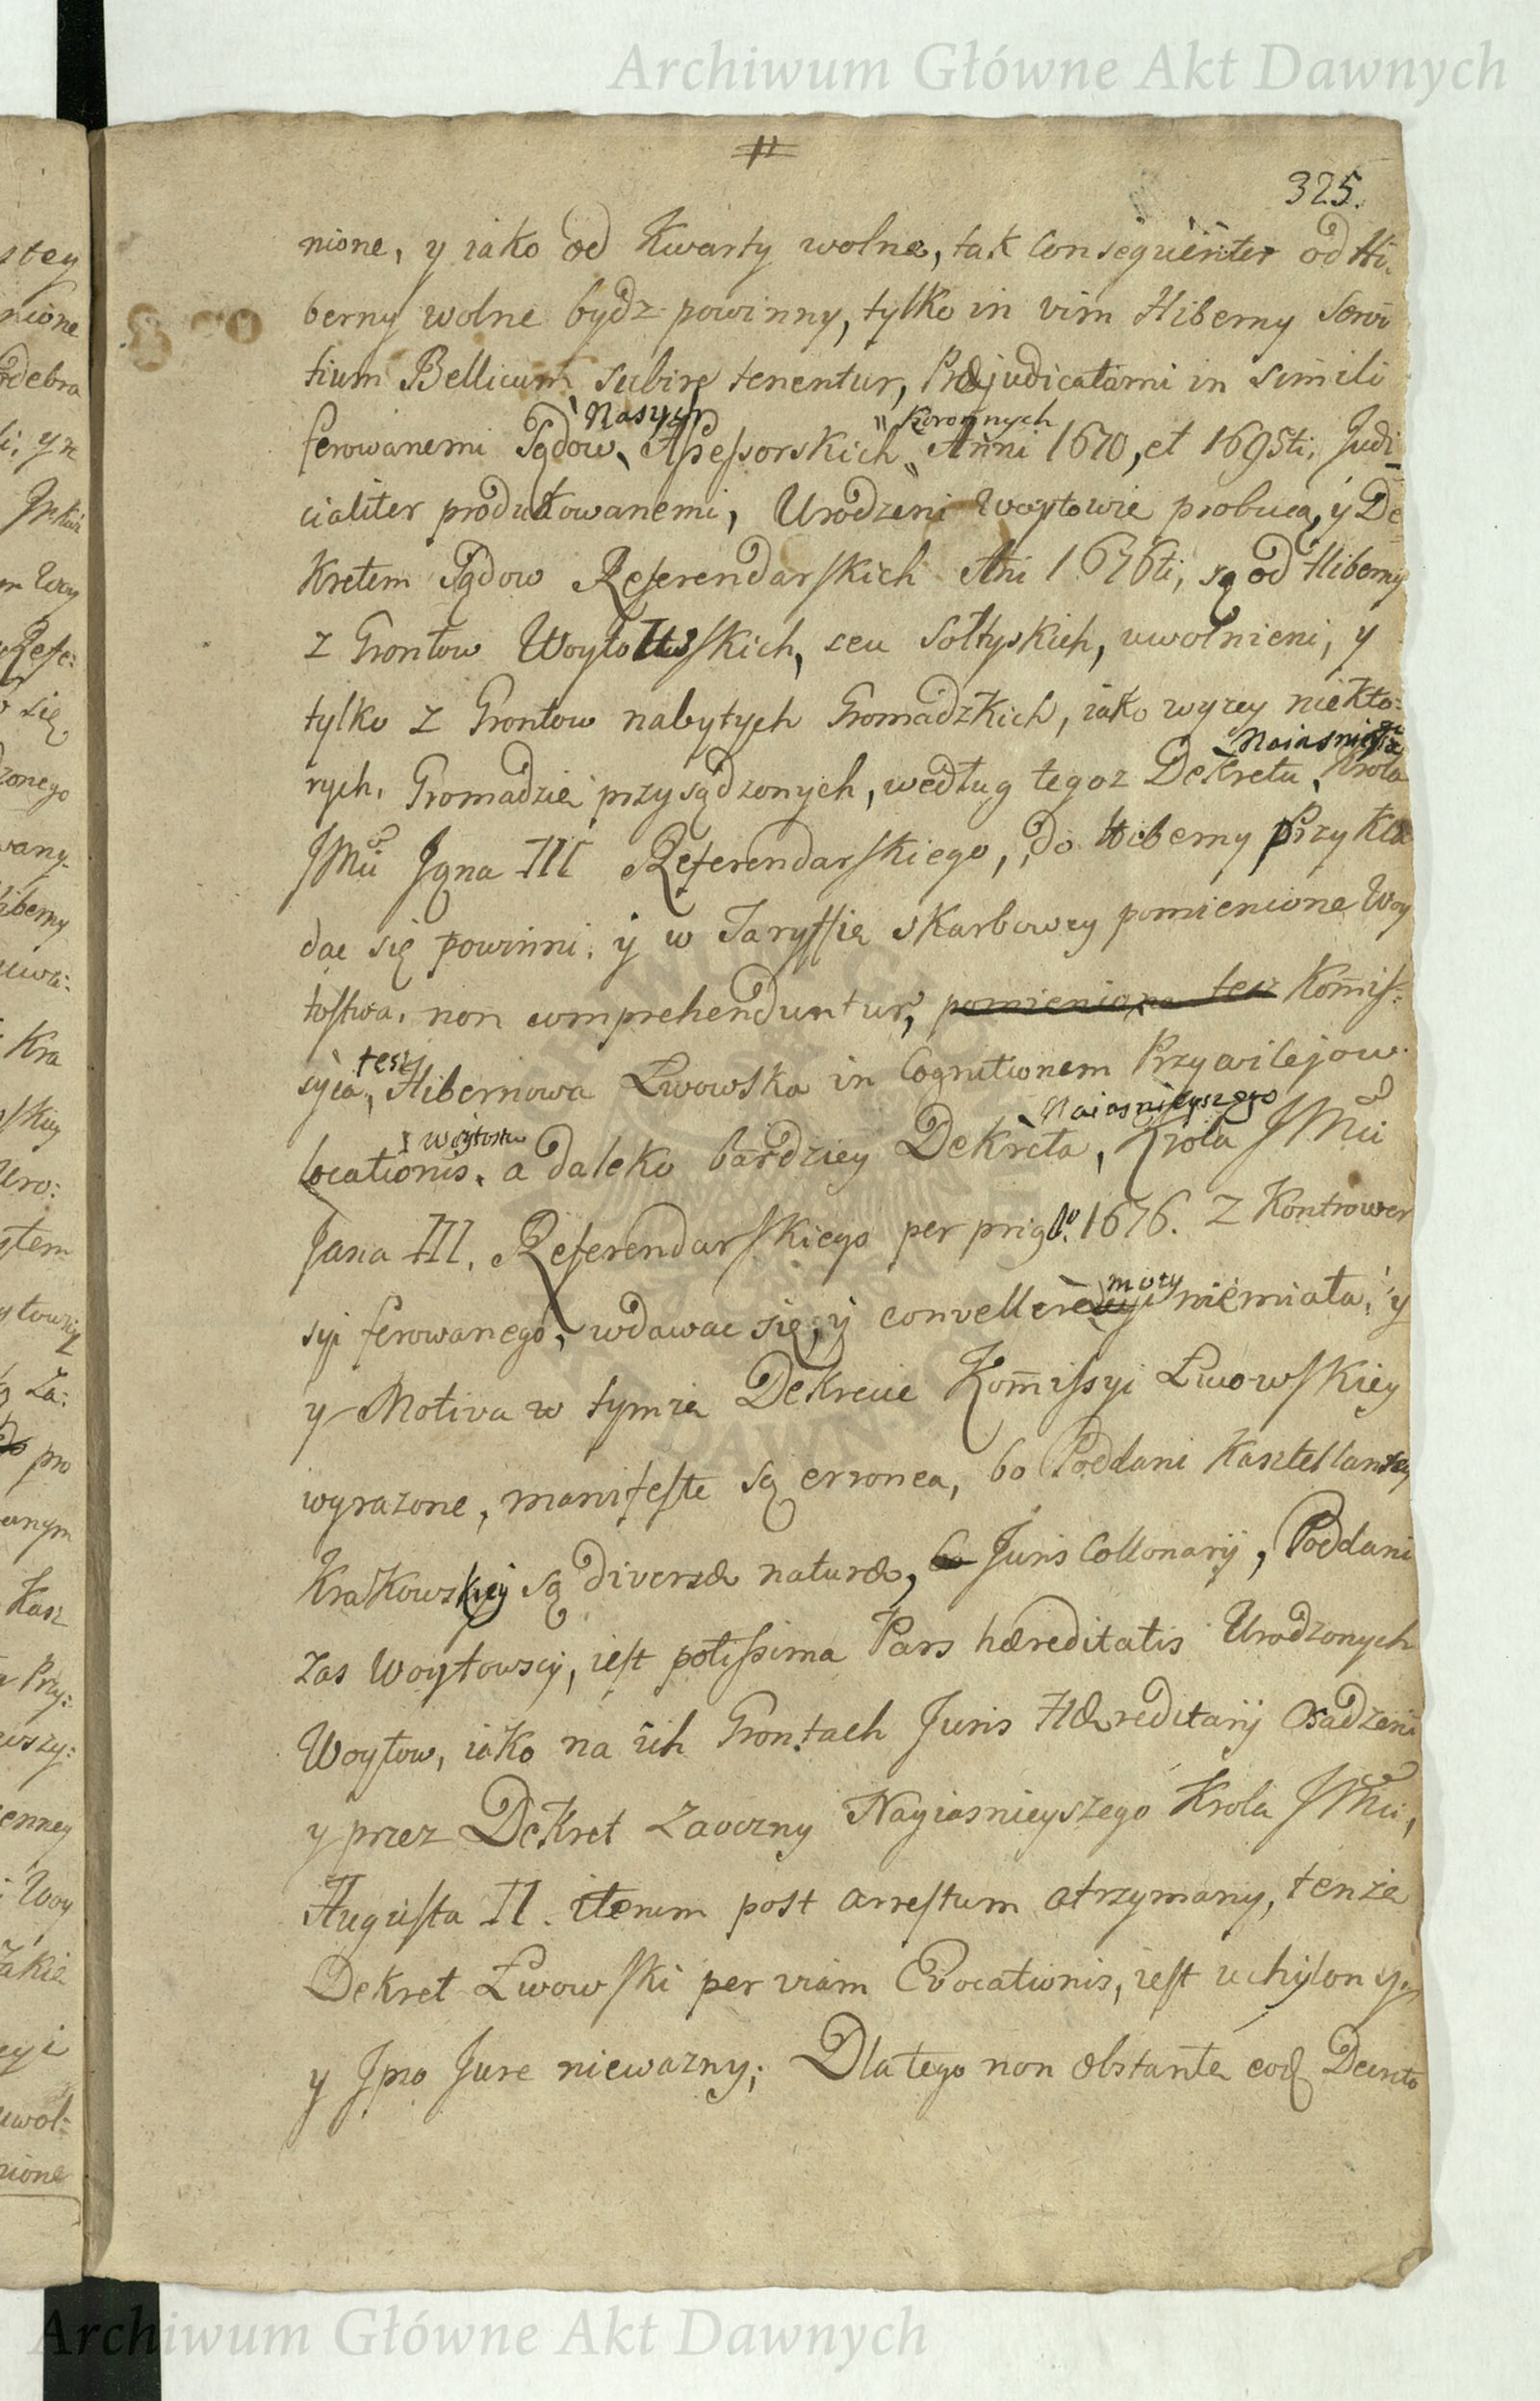 Archiwum Główne Akt Dawnych
325.
nione, y iako od Kwarty wolne, tak Consequenter od Hi-
berny wolne bydz powinny, tylko in vim Hiberny Servi
tium Bellicum subire tenentur, Præjudicatami in simili
Naszych Koronnych
ferowanemi Sądow, Assessorskich Anni 1670, et 1695ti, Judi-
cialiter produkowanemi, Urodzeni Woytowie probuią, y De
kretem Sądow Referendarskich Ani 1676ti, są od Hiberny
z Grontow Woytowskich, seu Sołtyskich, uwolnieni, y
tylko z Grontow nabytych Gromadzkich, iako wyzey niekto:
rych, Gromadzie przysądzonych, według tegoz Dekretu, Krola
JMci Jana III Referendarskiego, do Hiberny Przykła
dac się powinni, y w Taryffie skarbowey pomienione Woy
tostwa, non comprehenduntur, pomieniona tesz Komis-
tesz
syia, Hibernowa Lwowska in Cognitionem Przywilejow
Woytostw Naiasnieyszego
locationis, a daleko bardziey Dekreta, Krola JMci
Jana III. Referendarskiego per 1676. z Kontrower
mocy
syi ferowanego, wdawac się, y convellere niemiała, y
y Motiva w tymze Dekrecie Komissyi Lwowskiey
wyrazone, manifeste są erronea, bo Poddani Kasztellaniey
Krakowskiey są diversæ naturæ, bo Juris Collonarij, Poddani
zas Woytowscy, iest potissima Pars hæreditatis Urodzonych
Woytow, iako na ich Grontach Juris Hæreditarij Osadzeni
y przez Dekret Zaoczny Nayiasnieyszego Krola JMci,
Augusta II. iterum post arrestum otrzymany, tenze
Dekret Lwowski per viam Evocationis, iest uchylony,
y Ipso Jure niewazny; Dlatego non obstante eod Decreto
Archiwum Główne Akt Dawnych